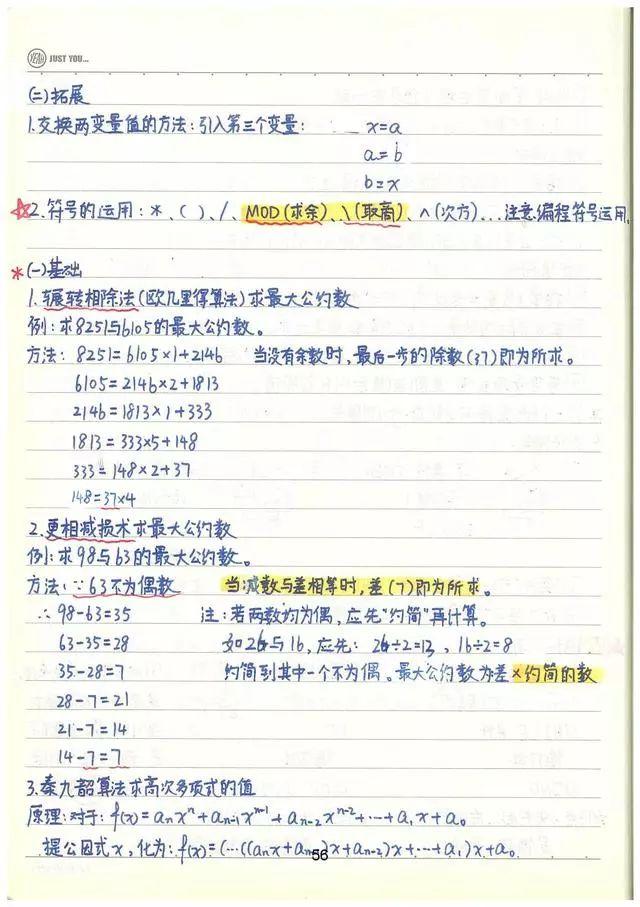 YEAH JUST YOU...
(二)拓展
1.交换两变量值的方法:引入第三个变量: x=a
a=b
b=x
☆2.符号的运用: *、( )、/、MOD(求余)、\(取商)、∧(次方)...注意编程符号运用.
*(一)基础
1.辗转相除法(欧几里得算法)求最大公约数
例:求8251与6105的最大公约数。
方法: 8251=6105×1+2146 当没有余数时,最后一步的除数(37)即为所求。
6105=2146×2+1813
2146=1813×1+333
1813=333×5+148
333=148×2+37
148=37×4
2.更相减损术求最大公约数
例:求98与63的最大公约数。
方法:∵63不为偶数 当减数与差相等时,差(7)即为所求。
∴98-63=35 注:若两数均为偶,应先"约简"再计算。
63-35=28 如26与16,应先: 26÷2=13, 16÷2=8
35-28=7 约简到其中一个不为偶。最大公约数为差×约简的数
28-7=21
21-7=14
14-7=7
3.秦九韶算法求高次多项式的值
原理:对于: f(x)=aₙxⁿ+aₙ₋₁xⁿ⁻¹+aₙ₋₂xⁿ⁻²+…+a₁x+a₀
提公因式x,化为: f(x)=(…((aₙx+aₙ₋₁)x+aₙ₋₂)x+…+a₁)x+a₀
56